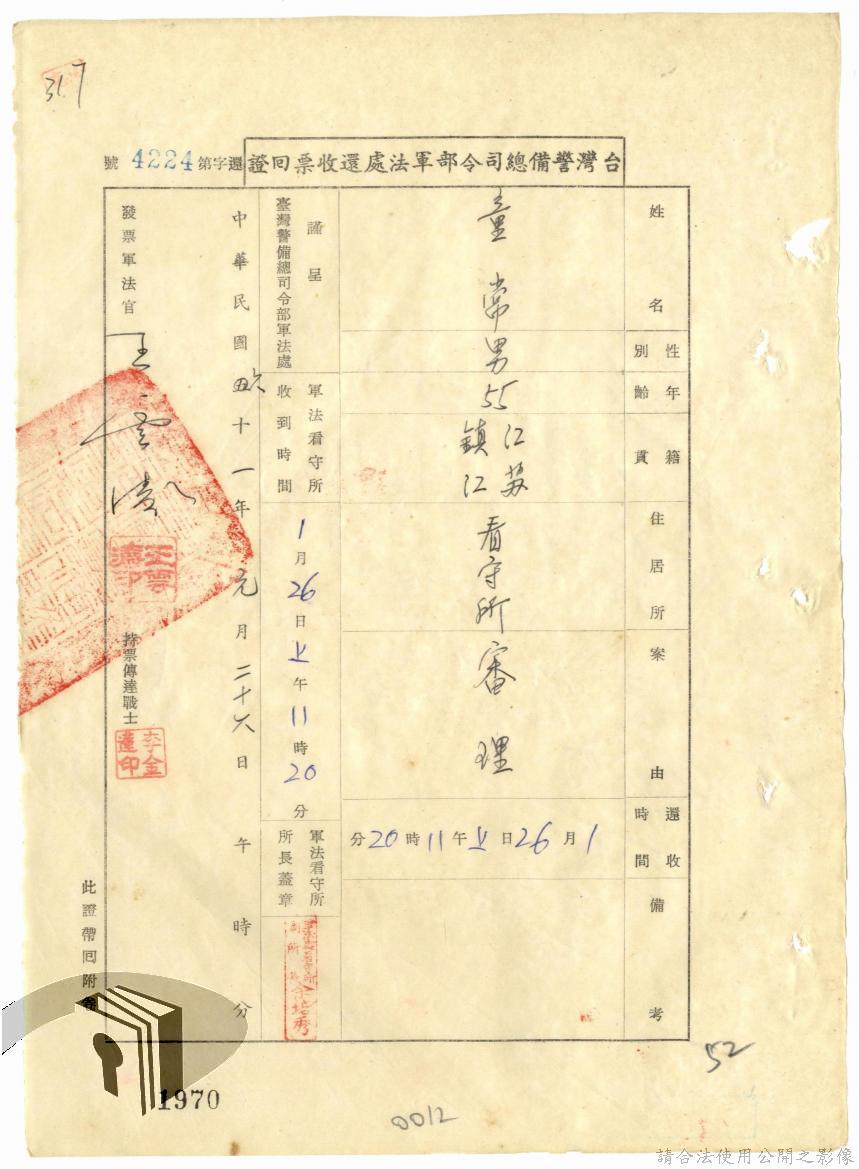 317
台灣警備總司令部軍法處還收票回證
還字第4224號
姓名
童常
性別
男
年齡
55
籍貫
江蘇
鎮江
住居所
看守所
案由
審理
還收時間
1月26日上午11時20分
備考
謹呈
臺灣警備總司令部軍法處
軍法看守所
收到時間
1月26日上午11時20分
軍法看守所
所長蓋章
中華民國
十一年元月二十六日 午 時 分
發票軍法官
王雲濤
王雲濤印
持票傳達戰士
李金蓮印
此證帶回附卷
52
1970
0012
請合法使用公開之影像